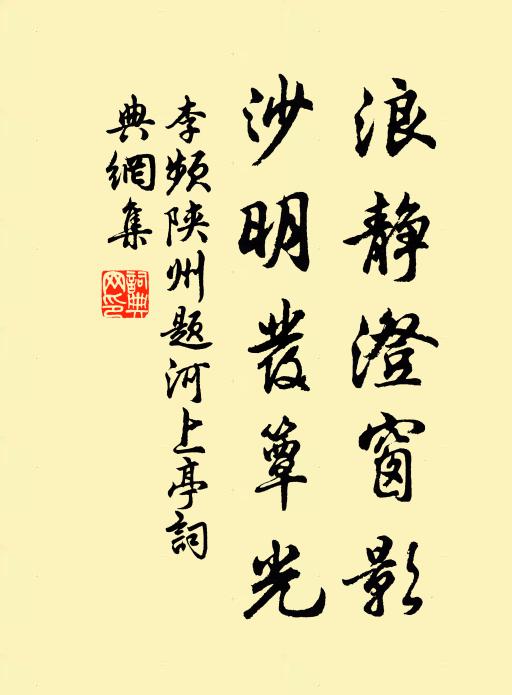 浪静澄窗影
沙明發簟光
李频陝州题河上亭詞
典網集
詞典網印